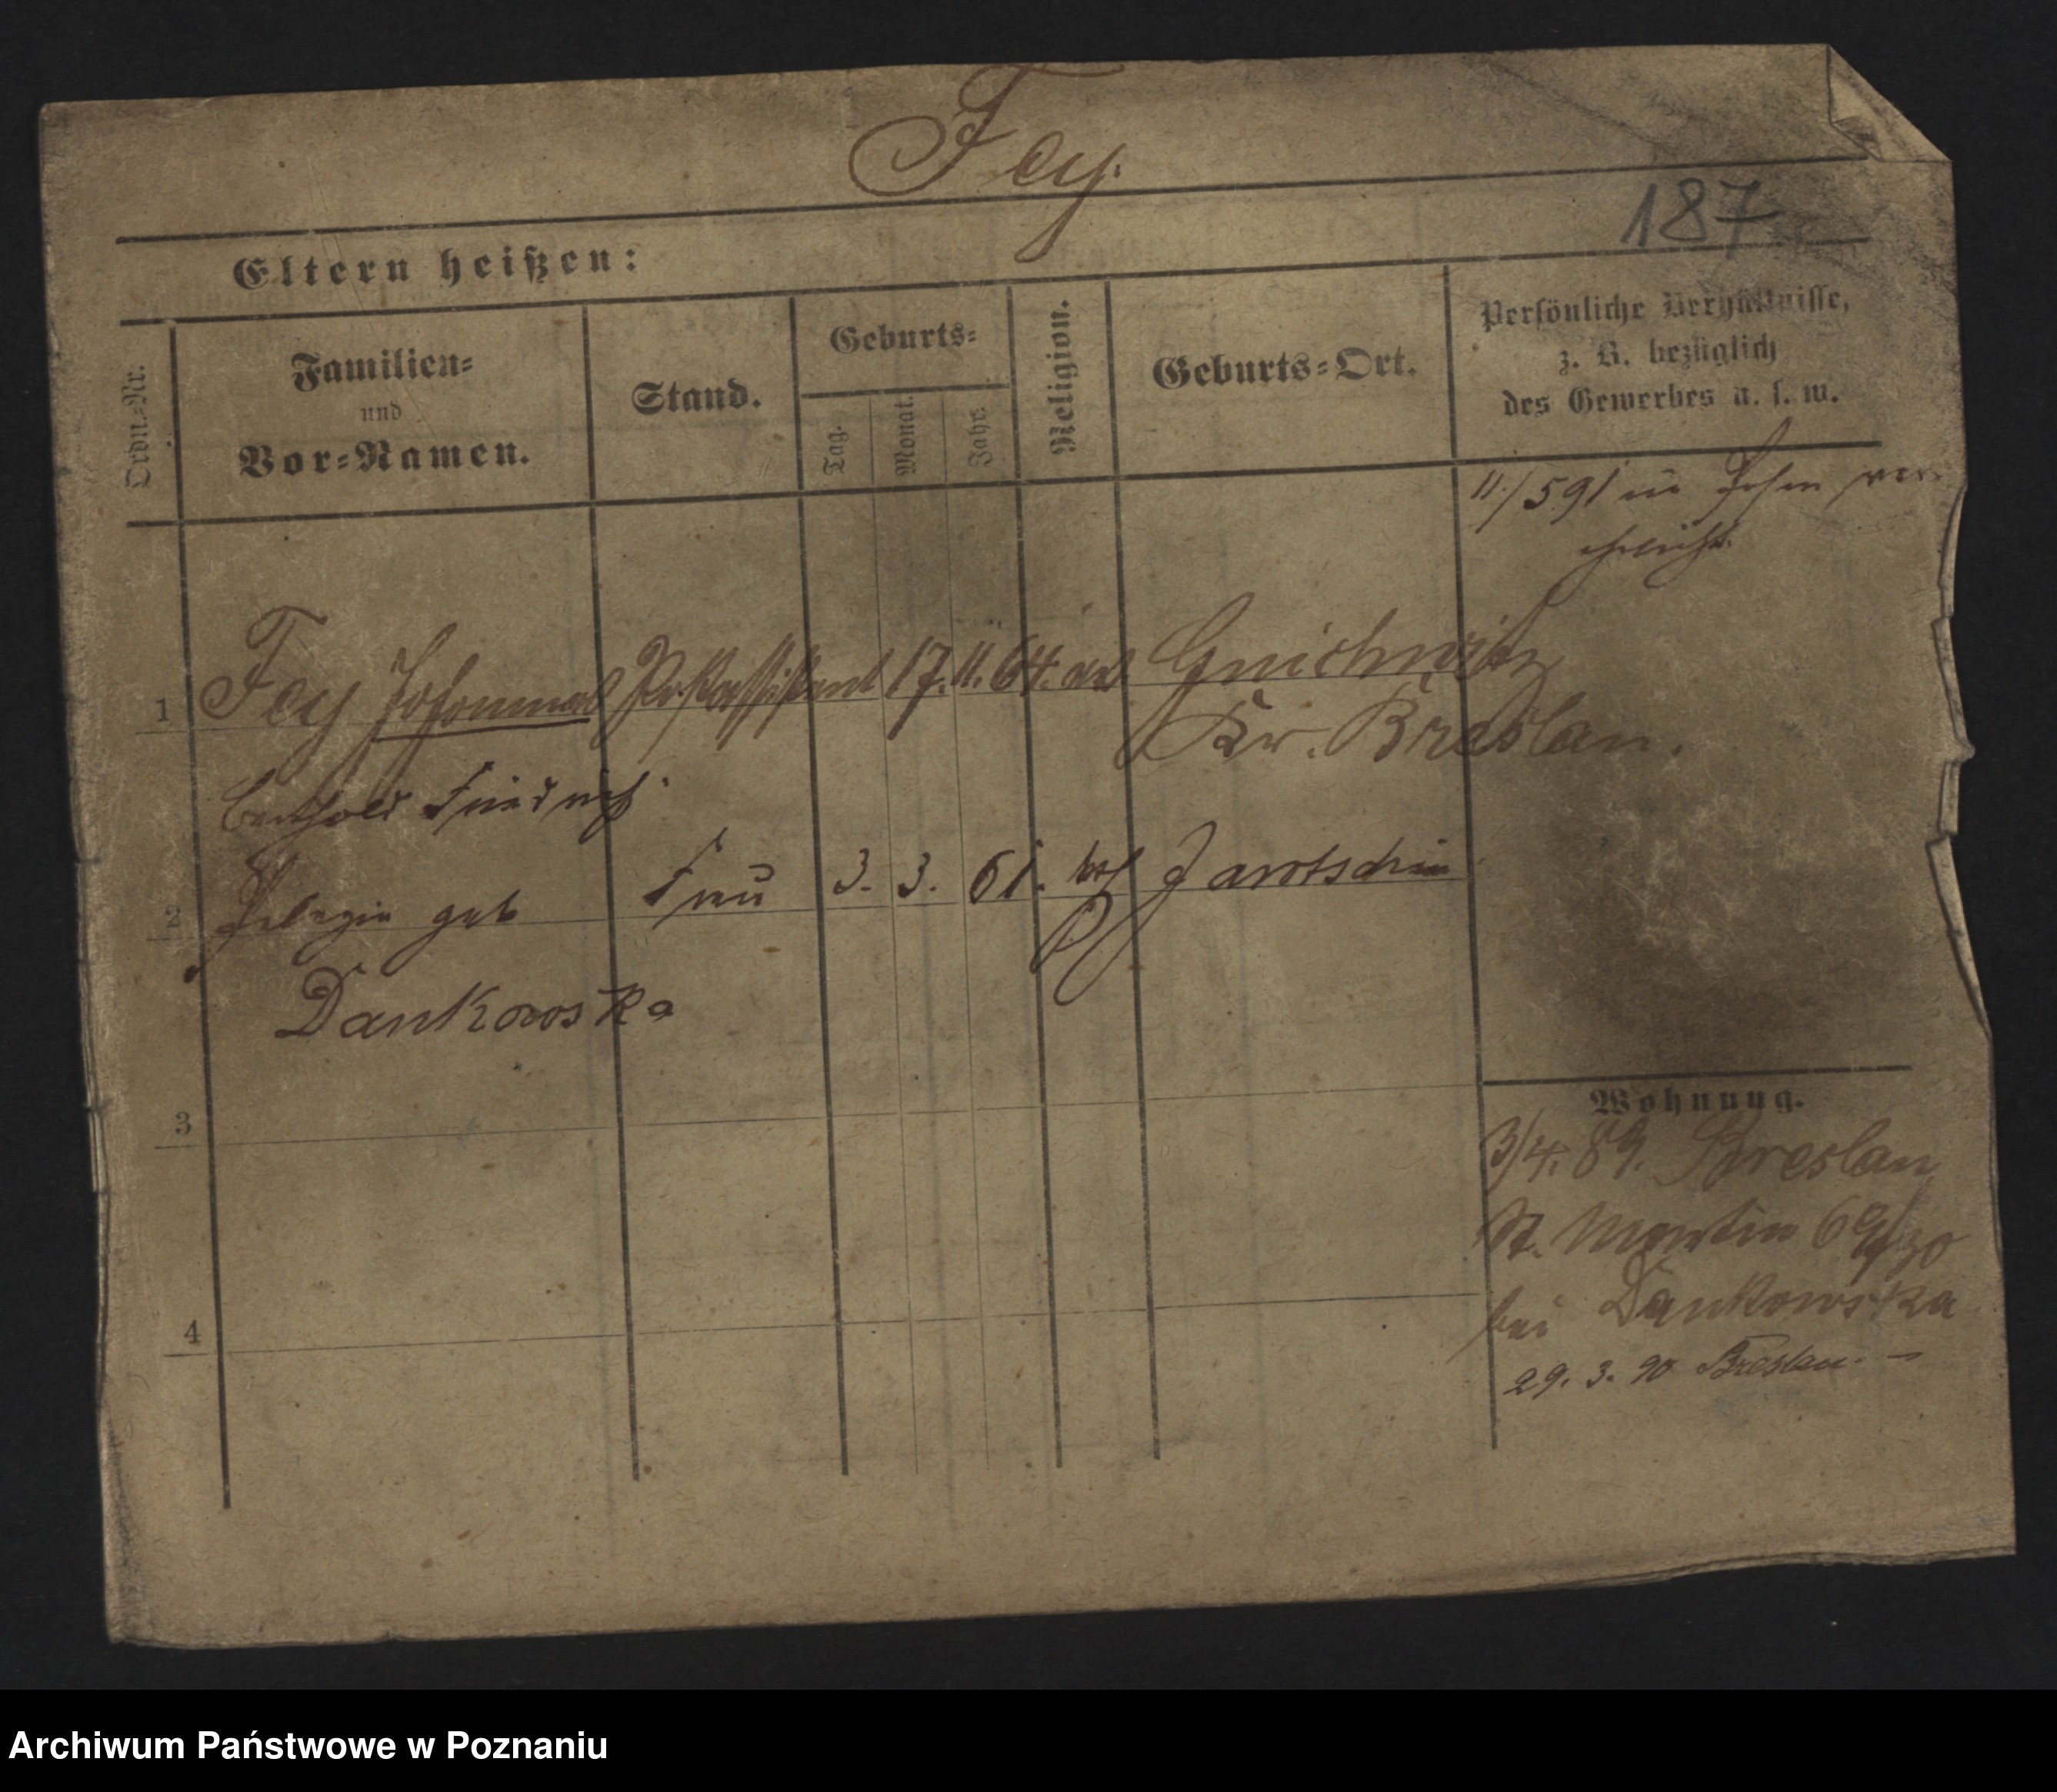 Fey.
187
Eltern heißen:
Ordn.-Nr.
Familien-
und
Vor-Namen.
Stand.
Geburts-
Tag.
Monat.
Jahr.
Religion.
Geburts-Ort.
Persönliche Verhältnisse,
z. B. bezüglich
des Gewerbes u. s. w.
11./5 91 in Posen ver-
ehelicht.
1 Fey Johannes 17. 11. 64. Gnichwitz
Kr. Breslau.
Berthold Friedrich
2 Pelagia geb Frau 3. 3. 61. Jarotschin
Dankowska
3
4
Wohnung.
3/4. 89. Breslau
St. Martin 69/70
bei Dankowska
29. 3. 90 Breslau. —
Archiwum Państwowe w Poznaniu